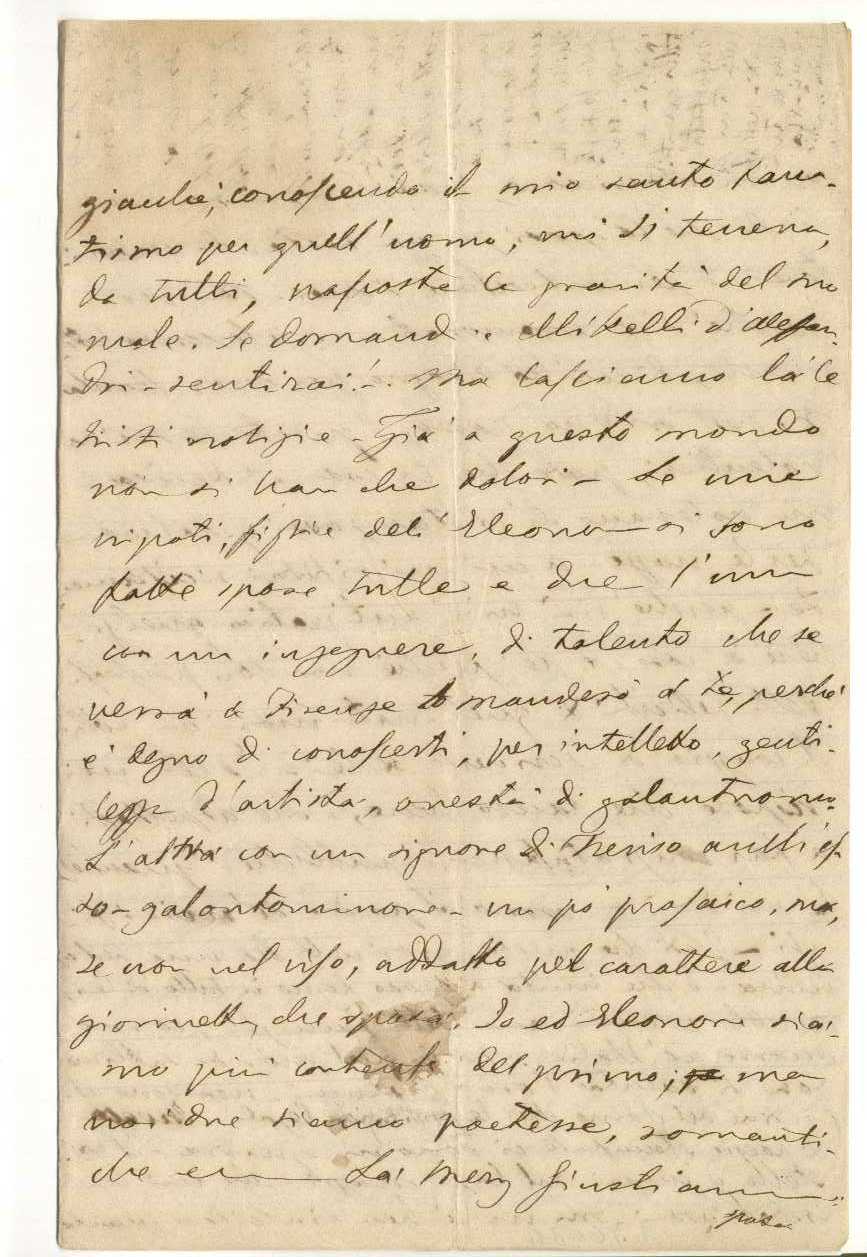 giacché, conoscendo il mio santo fana-
tismo per quell'uomo, mi si teneva,
da tutti, nascosta la gravità del suo
male. Se domand . . Mikelli d'Alessan-
dri - sentirai! - Ma lasciamo là le
tristi notizie - Già a questo mondo
non si han che dolori - Le mie
nipoti, figlie dell'Eleonora si sono
fatte spose tutte e due l'una
con un ingegnere, di talento che se
verrà a Firenze to manderò a te, perché
è degno di conoscerti, per intelletto, genti-
lezza d'artista, onestà di galantuomo.
L'altra con un signore di Treviso anch'es-
so - galantominone - un pò prosaico, ma,
se non nel viso, addatto pel carattere alla
giovinetta, che sposa. Io ed Eleonora sia-
mo più contente del primo; ma
noi due siamo poetesse, romanti-
che e La Mery Giustiana
sposa